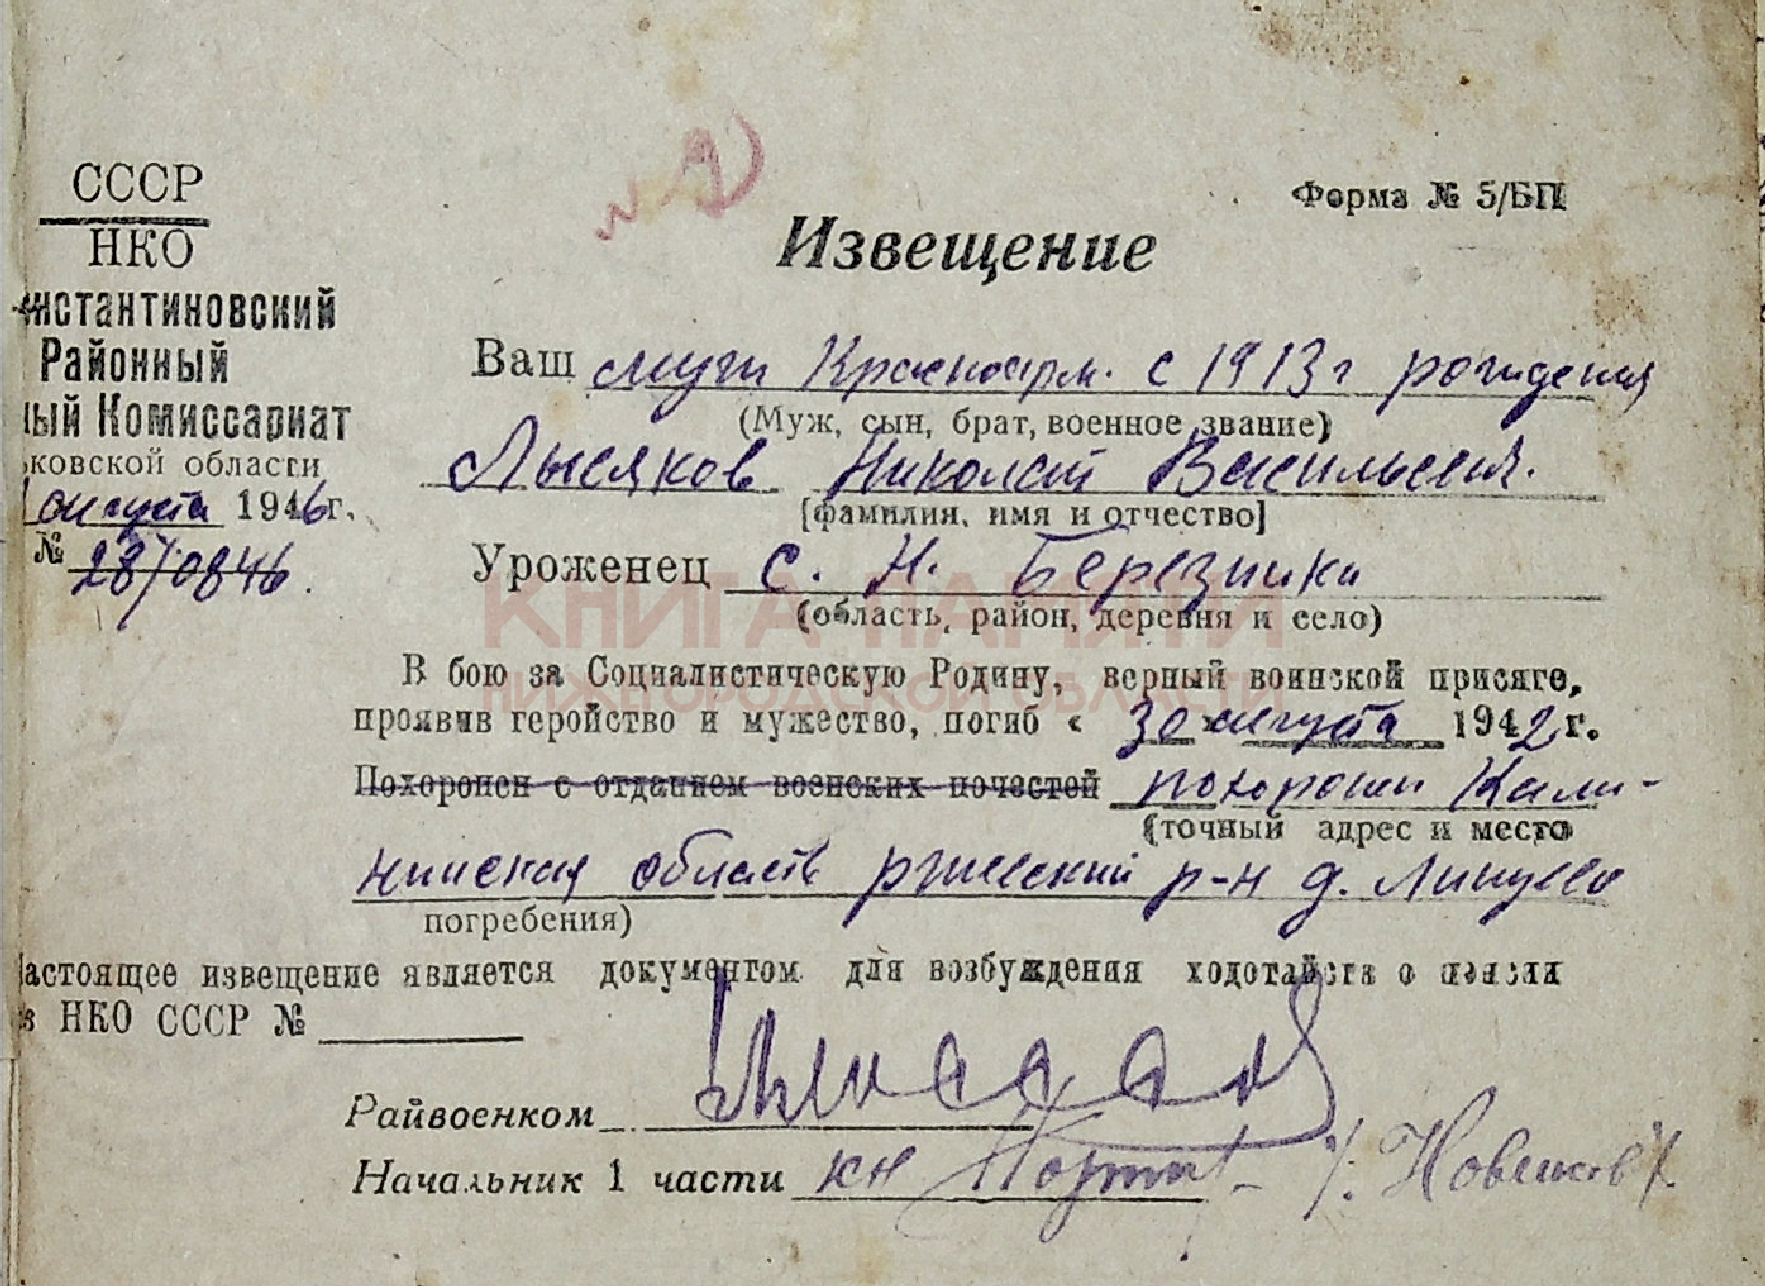 СССР
НКО
нстантиновский
Районный
ный Комиссариат
ьковской области
августа 1946г.
№ 287/0846.
Форма № 5/БП
Извещение
Ваш муж Красноарм. с 1913 г рождения
(Муж, сын, брат, военное звание)
Лысяков Николай Васильевич.
[фамилия, имя и отчество]
Уроженец с. Н. Березники
(область, район, деревня и село)
КНИГА ПАМЯТИ
НИЖЕГОРОДСКОЙ ОБЛАСТИ
В бою за Социалистическую Родину, верный воинской присяге,
проявив геройство и мужество, погиб « 30 » августа 1942 г.
Похоронен с отданием военских почестей похоронен Кали-
(точный адрес и место
нинская область ржевский р-н д.
погребения)
астоящее извещение является документом для возбуждения ходотайств о пенсии
з НКО СССР №
Райвоенком
Начальник 1 части